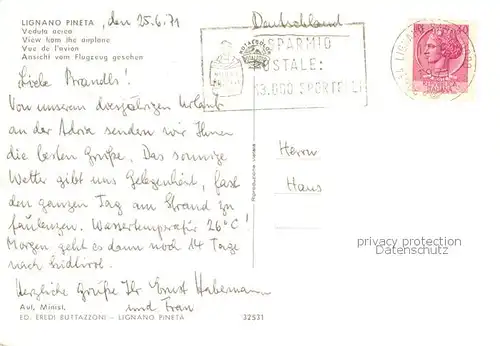 LIGNANO PINETA, den 25.6.71
Veduta aerea
View from the airplane
Vue de l'avion
Ansicht vom Flugzeug gesehen
Liebe Brandls!
Von unserem diesjährigen Urlaub
an der Adria senden wir Ihnen
die besten Grüße. Das sonnige
Wetter gibt uns Gelegenheit, fast
den ganzen Tag am Strand zu
faulenzen. Wassertemperatur 26°C!
Morgen geht es dann noch 14 Tage
nach Südtirol.
Herzliche Grüße Ihr Ernst Habermann
und Frau
Aut. Minist.
ED. ERLDI BUTTAZZONI - LIGNANO PINETA
32531
Deutschland
RISPARMIO
POSTALE:
SPORTELLI
Herrn
Hans
privacy protection
Datenschutz